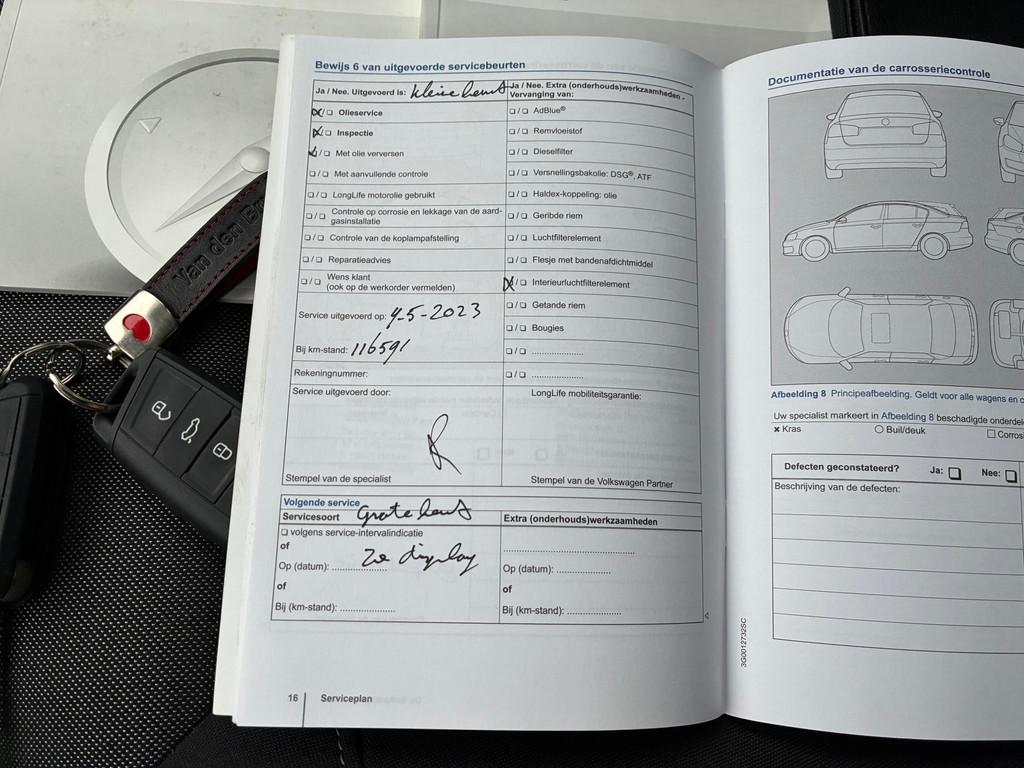 Bewijs 6 van uitgevoerde servicebeurten
Ja / Nee. Uitgevoerd is: kleine beurt
❑/❑ Olieservice
❑/❑ Inspectie
❑/❑ Met olie verversen
❑/❑ Met aanvullende controle
❑/❑ LongLife motorolie gebruikt
❑/❑ Controle op corrosie en lekkage van de aard-
gasinstallatie
❑/❑ Controle van de koplampafstelling
❑/❑ Reparatieadvies
❑/❑ Wens klant
(ook op de werkorder vermelden)
Service uitgevoerd op: 4-5-2023
Bij km-stand: 116591
Rekeningnummer:
Service uitgevoerd door:
Stempel van de specialist
Ja / Nee. Extra (onderhouds)werkzaamheden -
Vervanging van:
❑/❑ AdBlue®
❑/❑ Remvloeistof
❑/❑ Dieselfilter
❑/❑ Versnellingsbakolie: DSG®, ATF
❑/❑ Haldex-koppeling: olie
❑/❑ Geribde riem
❑/❑ Luchtfilterelement
❑/❑ Flesje met bandenafdichtmiddel
❑/❑ Interieurluchtfilterelement
❑/❑ Getande riem
❑/❑ Bougies
❑/❑ .....................
❑/❑ .....................
LongLife mobiliteitsgarantie:
Stempel van de Volkswagen Partner
Volgende service
Servicesoort Grote beurt
❑ volgens service-intervalindicatie
of
Op (datum): .................. Zie display
of
Bij (km-stand): ..................
Extra (onderhouds)werkzaamheden
..........................................
Op (datum): ..................
of
Bij (km-stand): ..................
16 Serviceplan
Documentatie van de carrosseriecontrole
Afbeelding 8 Principeafbeelding. Geldt voor alle wagens en c
Uw specialist markeert in Afbeelding 8 beschadigde onderdel
× Kras ○ Buil/deuk ❑ Corros
Defecten geconstateerd? Ja: ❑ Nee: ❑
Beschrijving van de defecten:
3G0012732SC
Van den Br